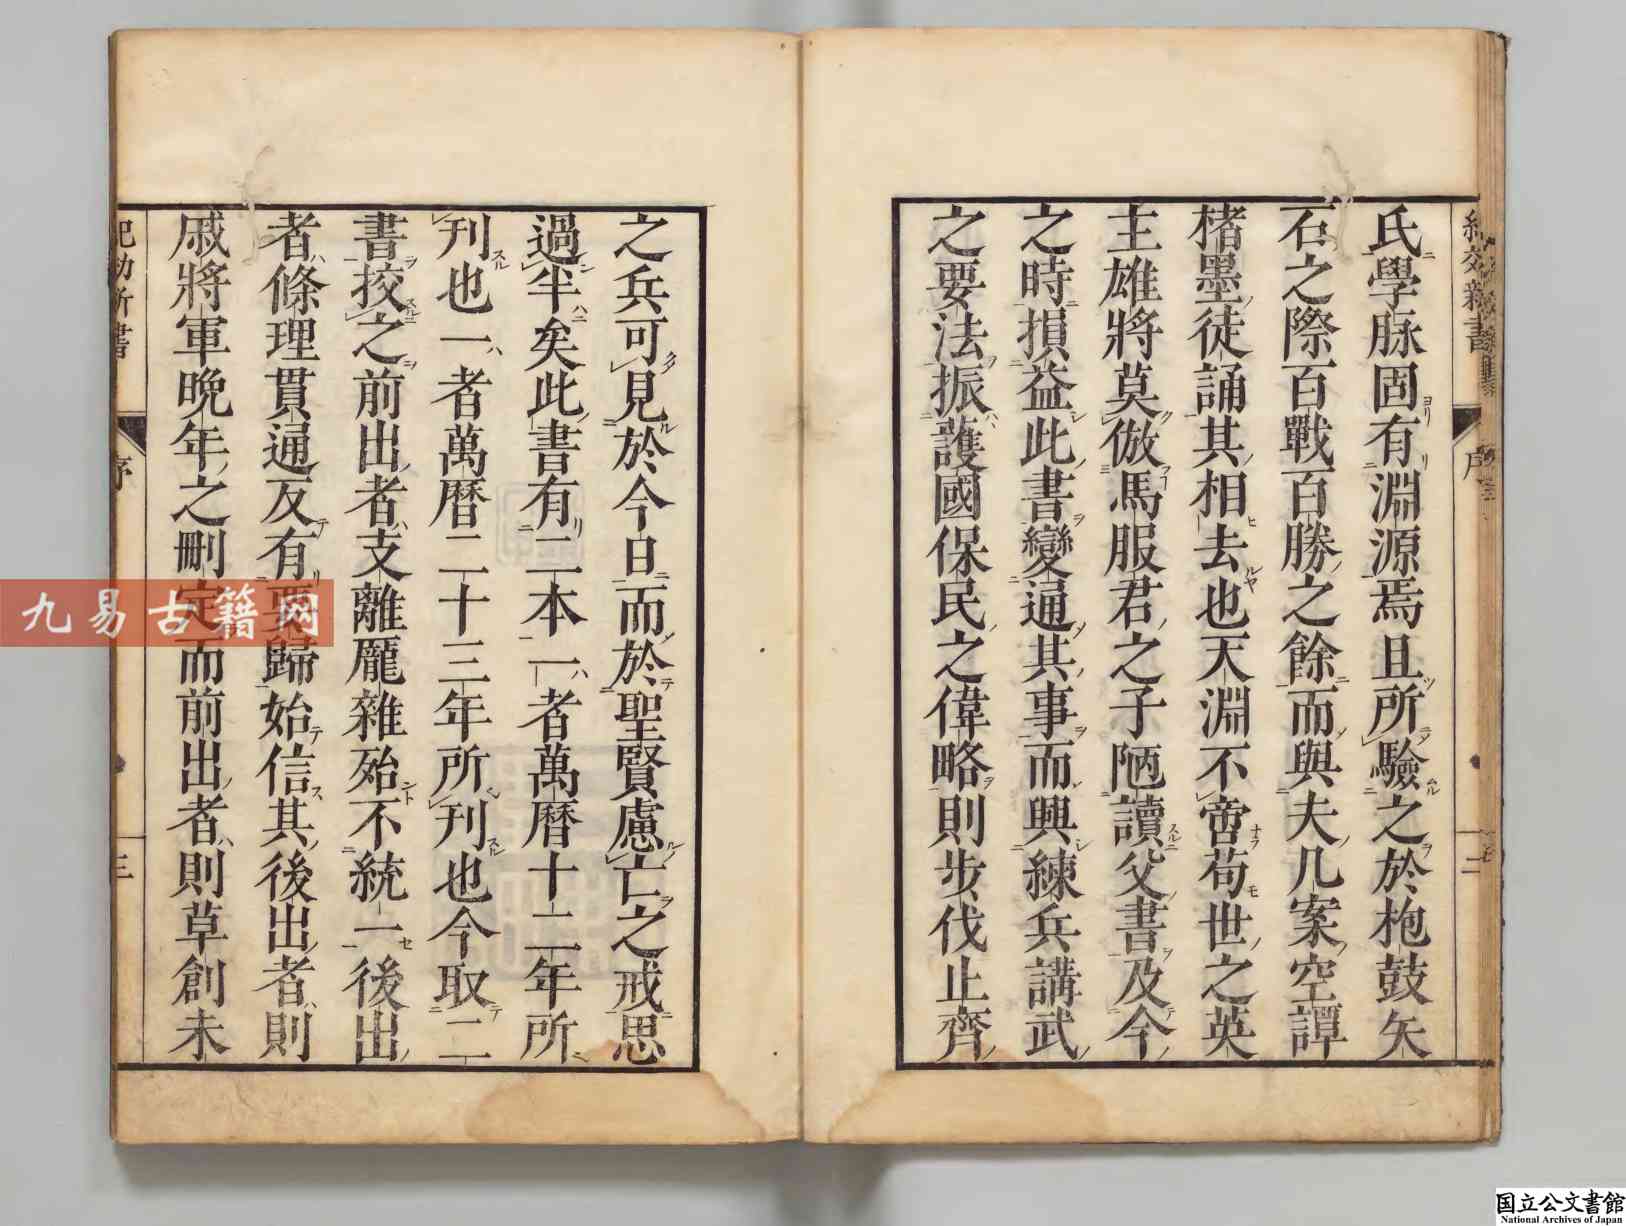 氏學脉固有淵源焉且所驗之於枹鼓矢
石之際百戰百勝之餘而與夫几案空譚
楮墨徒誦其相去也天淵不啻苟世之英
主雄將莫倣馬服君之子陋讀父書及今
之時損益此書變通其事而興練兵講武
之要法振護國保民之偉略則步伐止齊
之兵可見於今日而於聖賢慮亡之戒思
過半矣此書有二本一者萬曆十二年所
刊也一者萬曆二十三年所刊也今取二
書挍之前出者支離厖雜殆不統一後出
者條理貫通反有要歸始信其後出者則
戚將軍晚年之刪定而前出者則草創未
序
二
序
三
九易古籍网
国立公文書館
National Archives of Japan